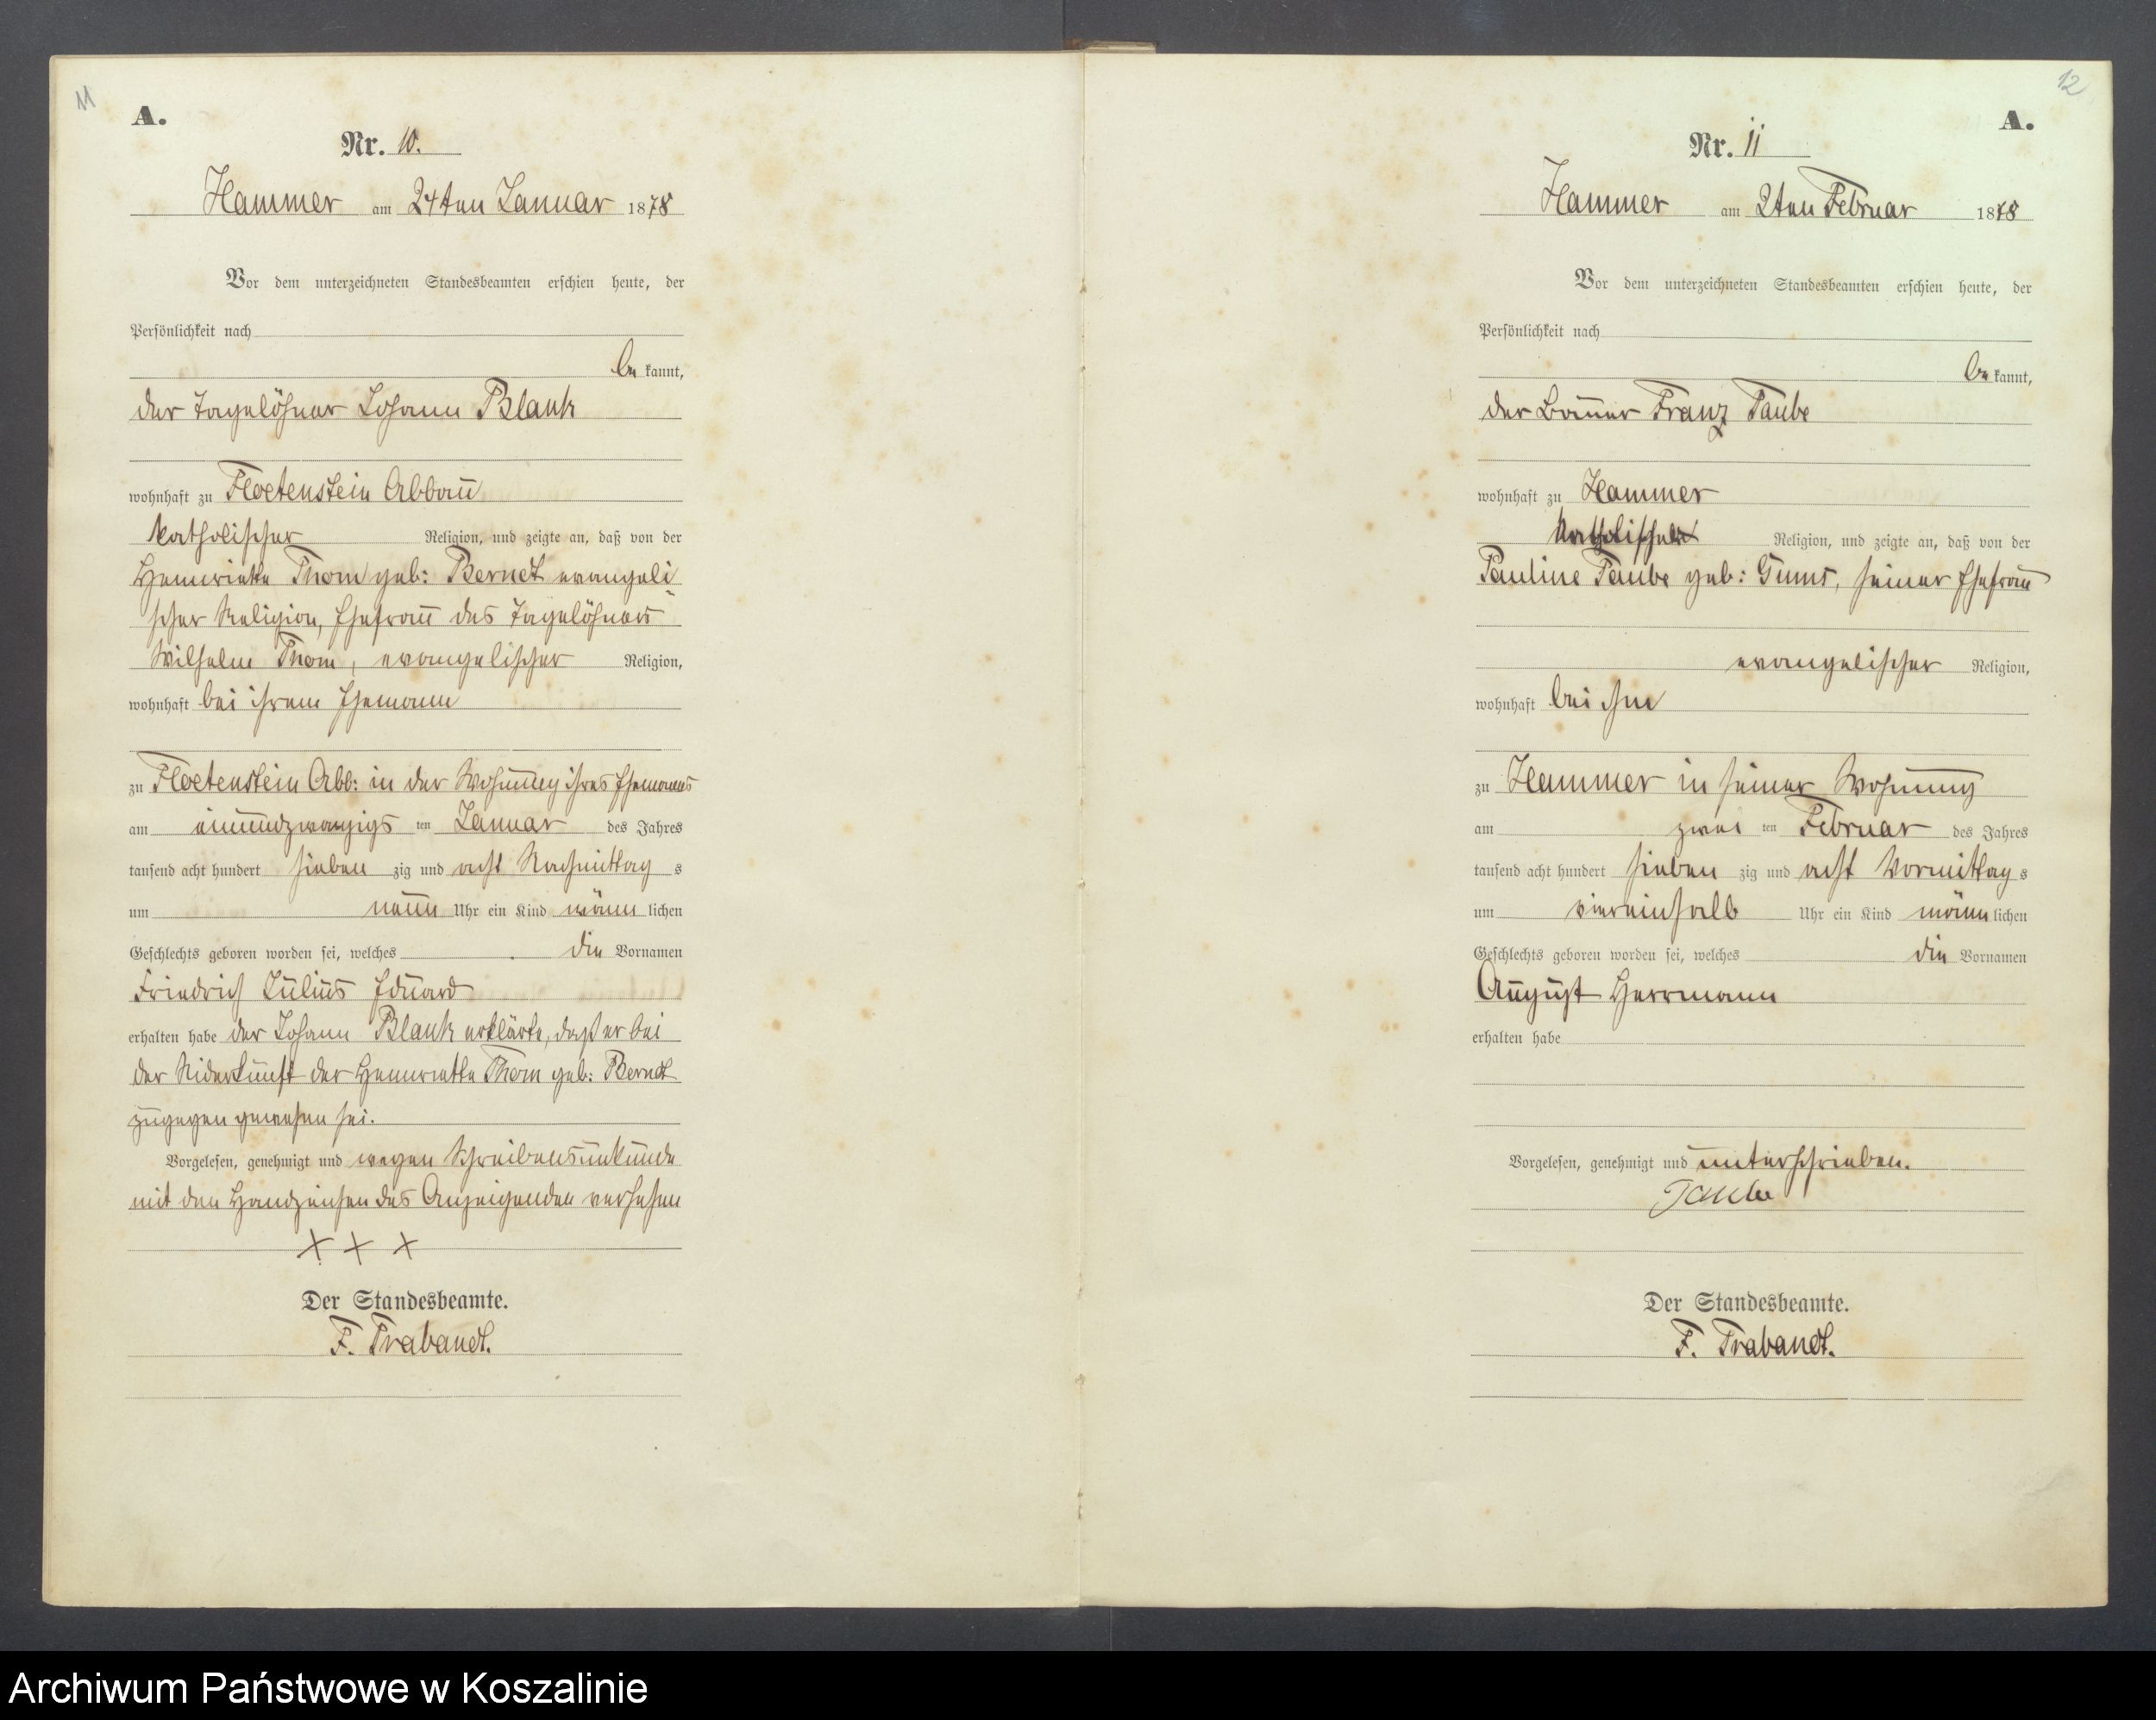 11
A.
Nr. 10.
Hammer am 24ten Januar 1878
Vor dem unterzeichneten Standesbeamten erschien heute, der
Persönlichkeit nach
be kannt,
der Tagelöhner Johann Blank
wohnhaft zu Floetenstein Abbau
katholischer Religion, und zeigte an, daß von der
Hennriette Thom geb: Berndt evangeli
scher Religion, Ehefrau des Tagelöhners
Wilhelm Thom, evangelischer Religion,
wohnhaft bei ihrem Ehemann
zu Floetenstein Abb: in der Wohnung ihres Ehemanns
am einundzwanzigs ten Januar des Jahres
tausend acht hundert sieben zig und acht Nachmittag s
um neun Uhr ein Kind männ lichen
Geschlechts geboren worden sei, welches die Vornamen
Friedrich Julius Eduard
erhalten habe der Johann Blank erklärte, daß er bei
der Niderkunft der Hennriette Thom geb: Berndt
zugegen gewesen sei.
Vorgelesen, genehmigt und wegen Schreibensunkunde
mit den Handzeichen des Anzeigenden versehen
X X X
Der Standesbeamte.
F. Trabandt.
12
A.
Nr. 11
Hammer am 2ten Februar 1878
Vor dem unterzeichneten Standesbeamten erschien heute, der
Persönlichkeit nach
be kannt,
der Bauer Franz Taube
wohnhaft zu Hammer
katholischer Religion, und zeigte an, daß von der
Pauline Taube geb: Gums, seiner Ehefrau
evangelischer Religion,
wohnhaft bei ihm
zu Hammer in seiner Wohnung
am zwei ten Februar des Jahres
tausend acht hundert sieben zig und acht Vormittag s
um viereinhalb Uhr ein Kind männ lichen
Geschlechts geboren worden sei, welches die Vornamen
August Herrmann
erhalten habe
Vorgelesen, genehmigt und unterschrieben.
Taube
Der Standesbeamte.
F. Trabandt.
Archiwum Państwowe w Koszalinie